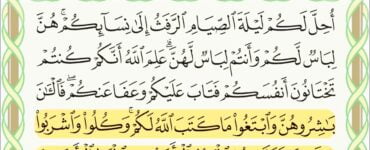 أُحِلَّ لَكُمۡ لَيۡلَةَ ٱلصِّيَامِ ٱلرَّفَثُ إِلَىٰ نِسَآئِكُمۡۚ هُنَّ
لِبَاسٞ لَّكُمۡ وَأَنتُمۡ لِبَاسٞ لَّهُنَّۗ عَلِمَ ٱللَّهُ أَنَّكُمۡ كُنتُمۡ
تَخۡتَانُونَ أَنفُسَكُمۡ فَتَابَ عَلَيۡكُمۡ وَعَفَا عَنكُمۡۖ فَٱلۡـَٰٔنَ
بَٰشِرُوهُنَّ وَٱبۡتَغُواْ مَا كَتَبَ ٱللَّهُ لَكُمۡۚ وَكُلُواْ وَٱشۡرَبُواْ